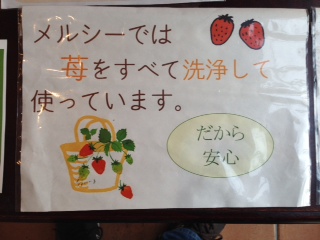 メルシーでは
苺をすべて洗浄して
使っています。
だから
安心